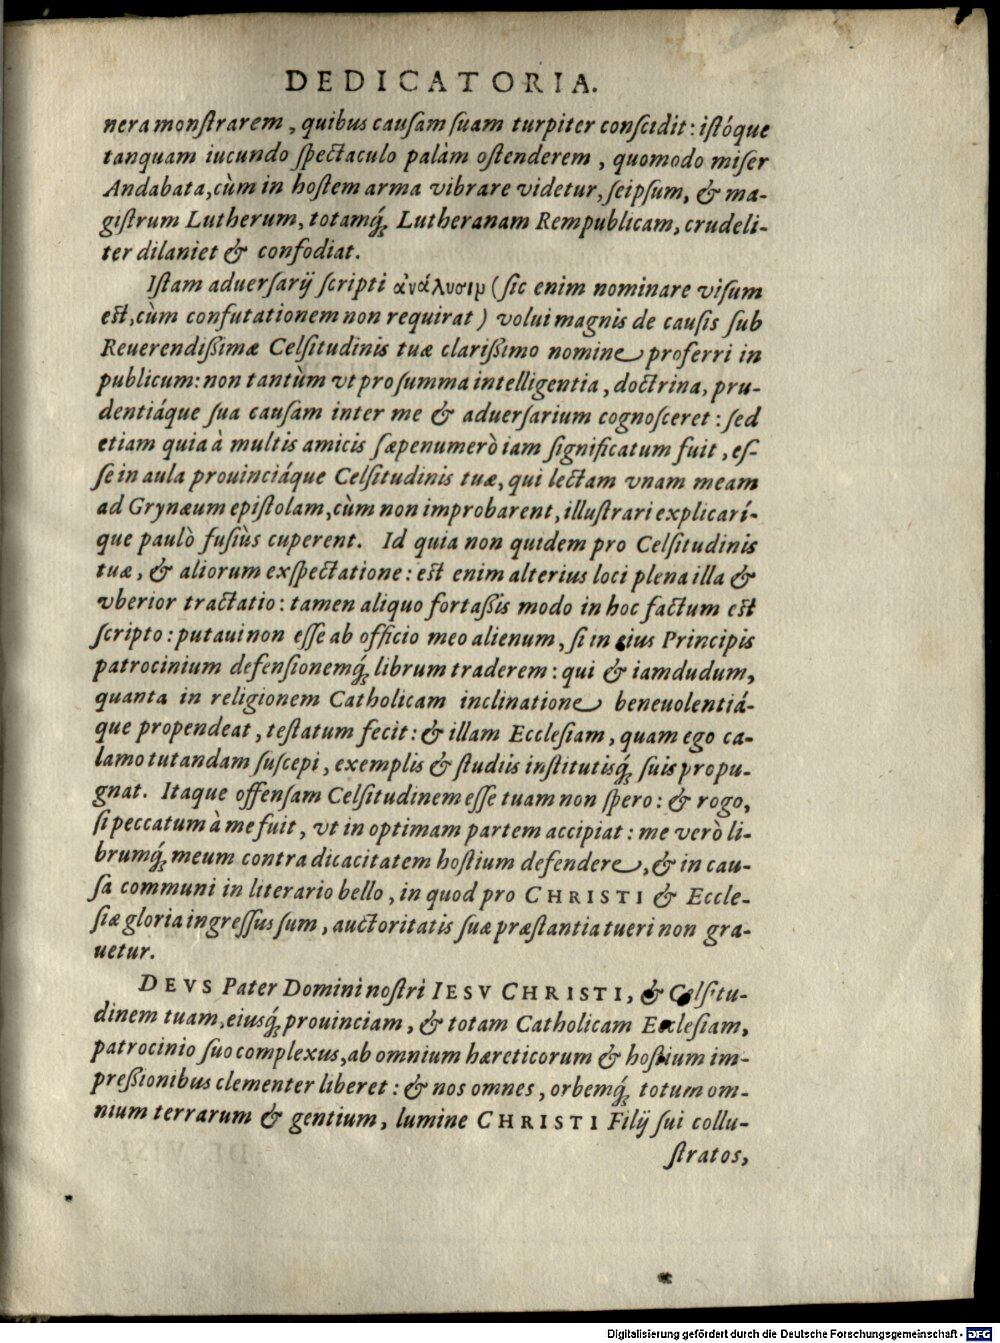 DEDICATORIA.
nera monſtrarem, quibus cauſam ſuam turpiter conſcidit: iſtóque
tanquam iucundo ſpectaculo palàm oſtenderem, quomodo miſer
Andabata, cùm in hoſtem arma vibrare videtur, ſeipſum, & ma-
giſtrum Lutherum, totamq́; Lutheranam Rempublicam, crudeli-
ter dilaniet & confodiat.
Iſtam aduerſarij ſcripti ἀνάλυσιμ (ſic enim nominare viſum
eſt, cùm confutationem non requirat) volui magnis de cauſis ſub
Reuerendißimæ Celſitudinis tuæ clarißimo nomine proferri in
publicum: non tantùm vt pro ſumma intelligentia, doctrina, pru-
dentiáque ſua cauſam inter me & aduerſarium cognoſceret: ſed
etiam quia à multis amicis ſæpenumerò iam ſignificatum fuit, eſ-
ſe in aula prouinciáque Celſitudinis tuæ, qui lectam vnam meam
ad Grynæum epiſtolam, cùm non improbarent, illuſtrari explicarí-
que paulò fuſiùs cuperent. Id quia non quidem pro Celſitudinis
tuæ, & aliorum exſpectatione: eſt enim alterius loci plena illa &
vberior tractatio: tamen aliquo fortaßis modo in hoc factum eſt
ſcripto: putaui non eſſe ab officio meo alienum, ſi in eius Principis
patrocinium defenſionemq́; librum traderem: qui & iamdudum,
quanta in religionem Catholicam inclinatione beneuolentiá-
que propendeat, teſtatum fecit: & illam Eccleſiam, quam ego ca-
lamo tutandam ſuſcepi, exemplis & ſtudiis inſtitutisq́; ſuis propu-
gnat. Itaque offenſam Celſitudinem eſſe tuam non ſpero: & rogo,
ſi peccatum à me fuit, vt in optimam partem accipiat: me verò li-
brumq́; meum contra dicacitatem hoſtium defendere, & in cau-
ſa communi in literario bello, in quod pro CHRISTI & Eccle-
ſiæ gloria ingreſſus ſum, auctoritatis ſuæ præſtantia tueri non gra-
uetur.
DEVS Pater Domini noſtri IESV CHRISTI, & Celſitu-
dinem tuam, eiusq́; prouinciam, & totam Catholicam Eccleſiam,
patrocinio ſuo complexus, ab omnium hæreticorum & hoſtium im-
preßionibus clementer liberet: & nos omnes, orbemq́; totum om-
nium terrarum & gentium, lumine CHRISTI Filij ſui collu-
ſtratos,
Digitalisierung gefördert durch die Deutsche Forschungsgemeinschaft - DFG